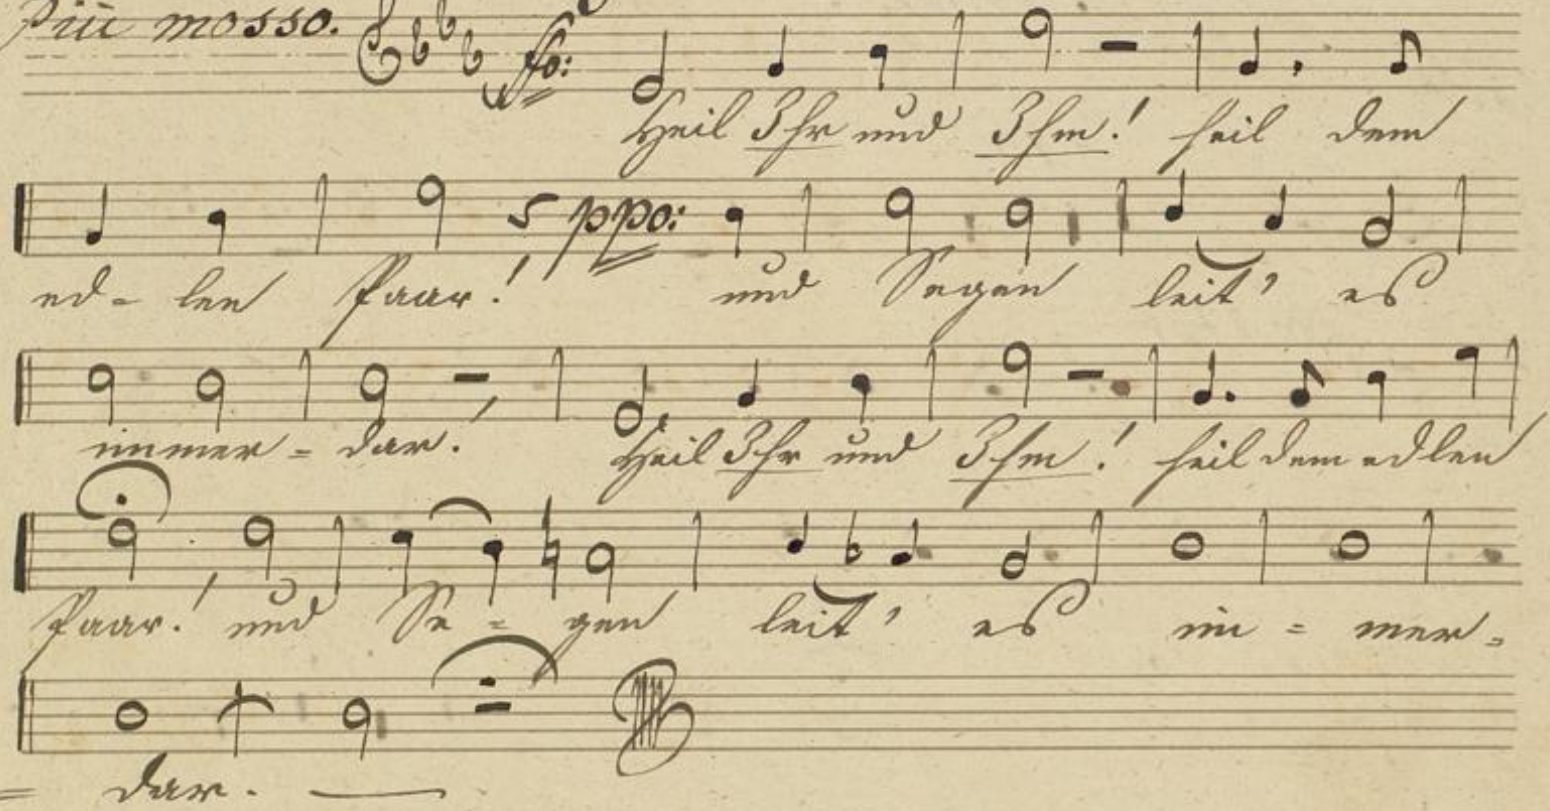 Più mosso. fo:
Heil Ihr und Ihm! heil dem
ppo:
ed- len Paar! und Segen leit' es
immer- dar. Heil Ihr und Ihm! heil dem edlen
Paar! und Se- gen leit' es im- mer-
- dar.